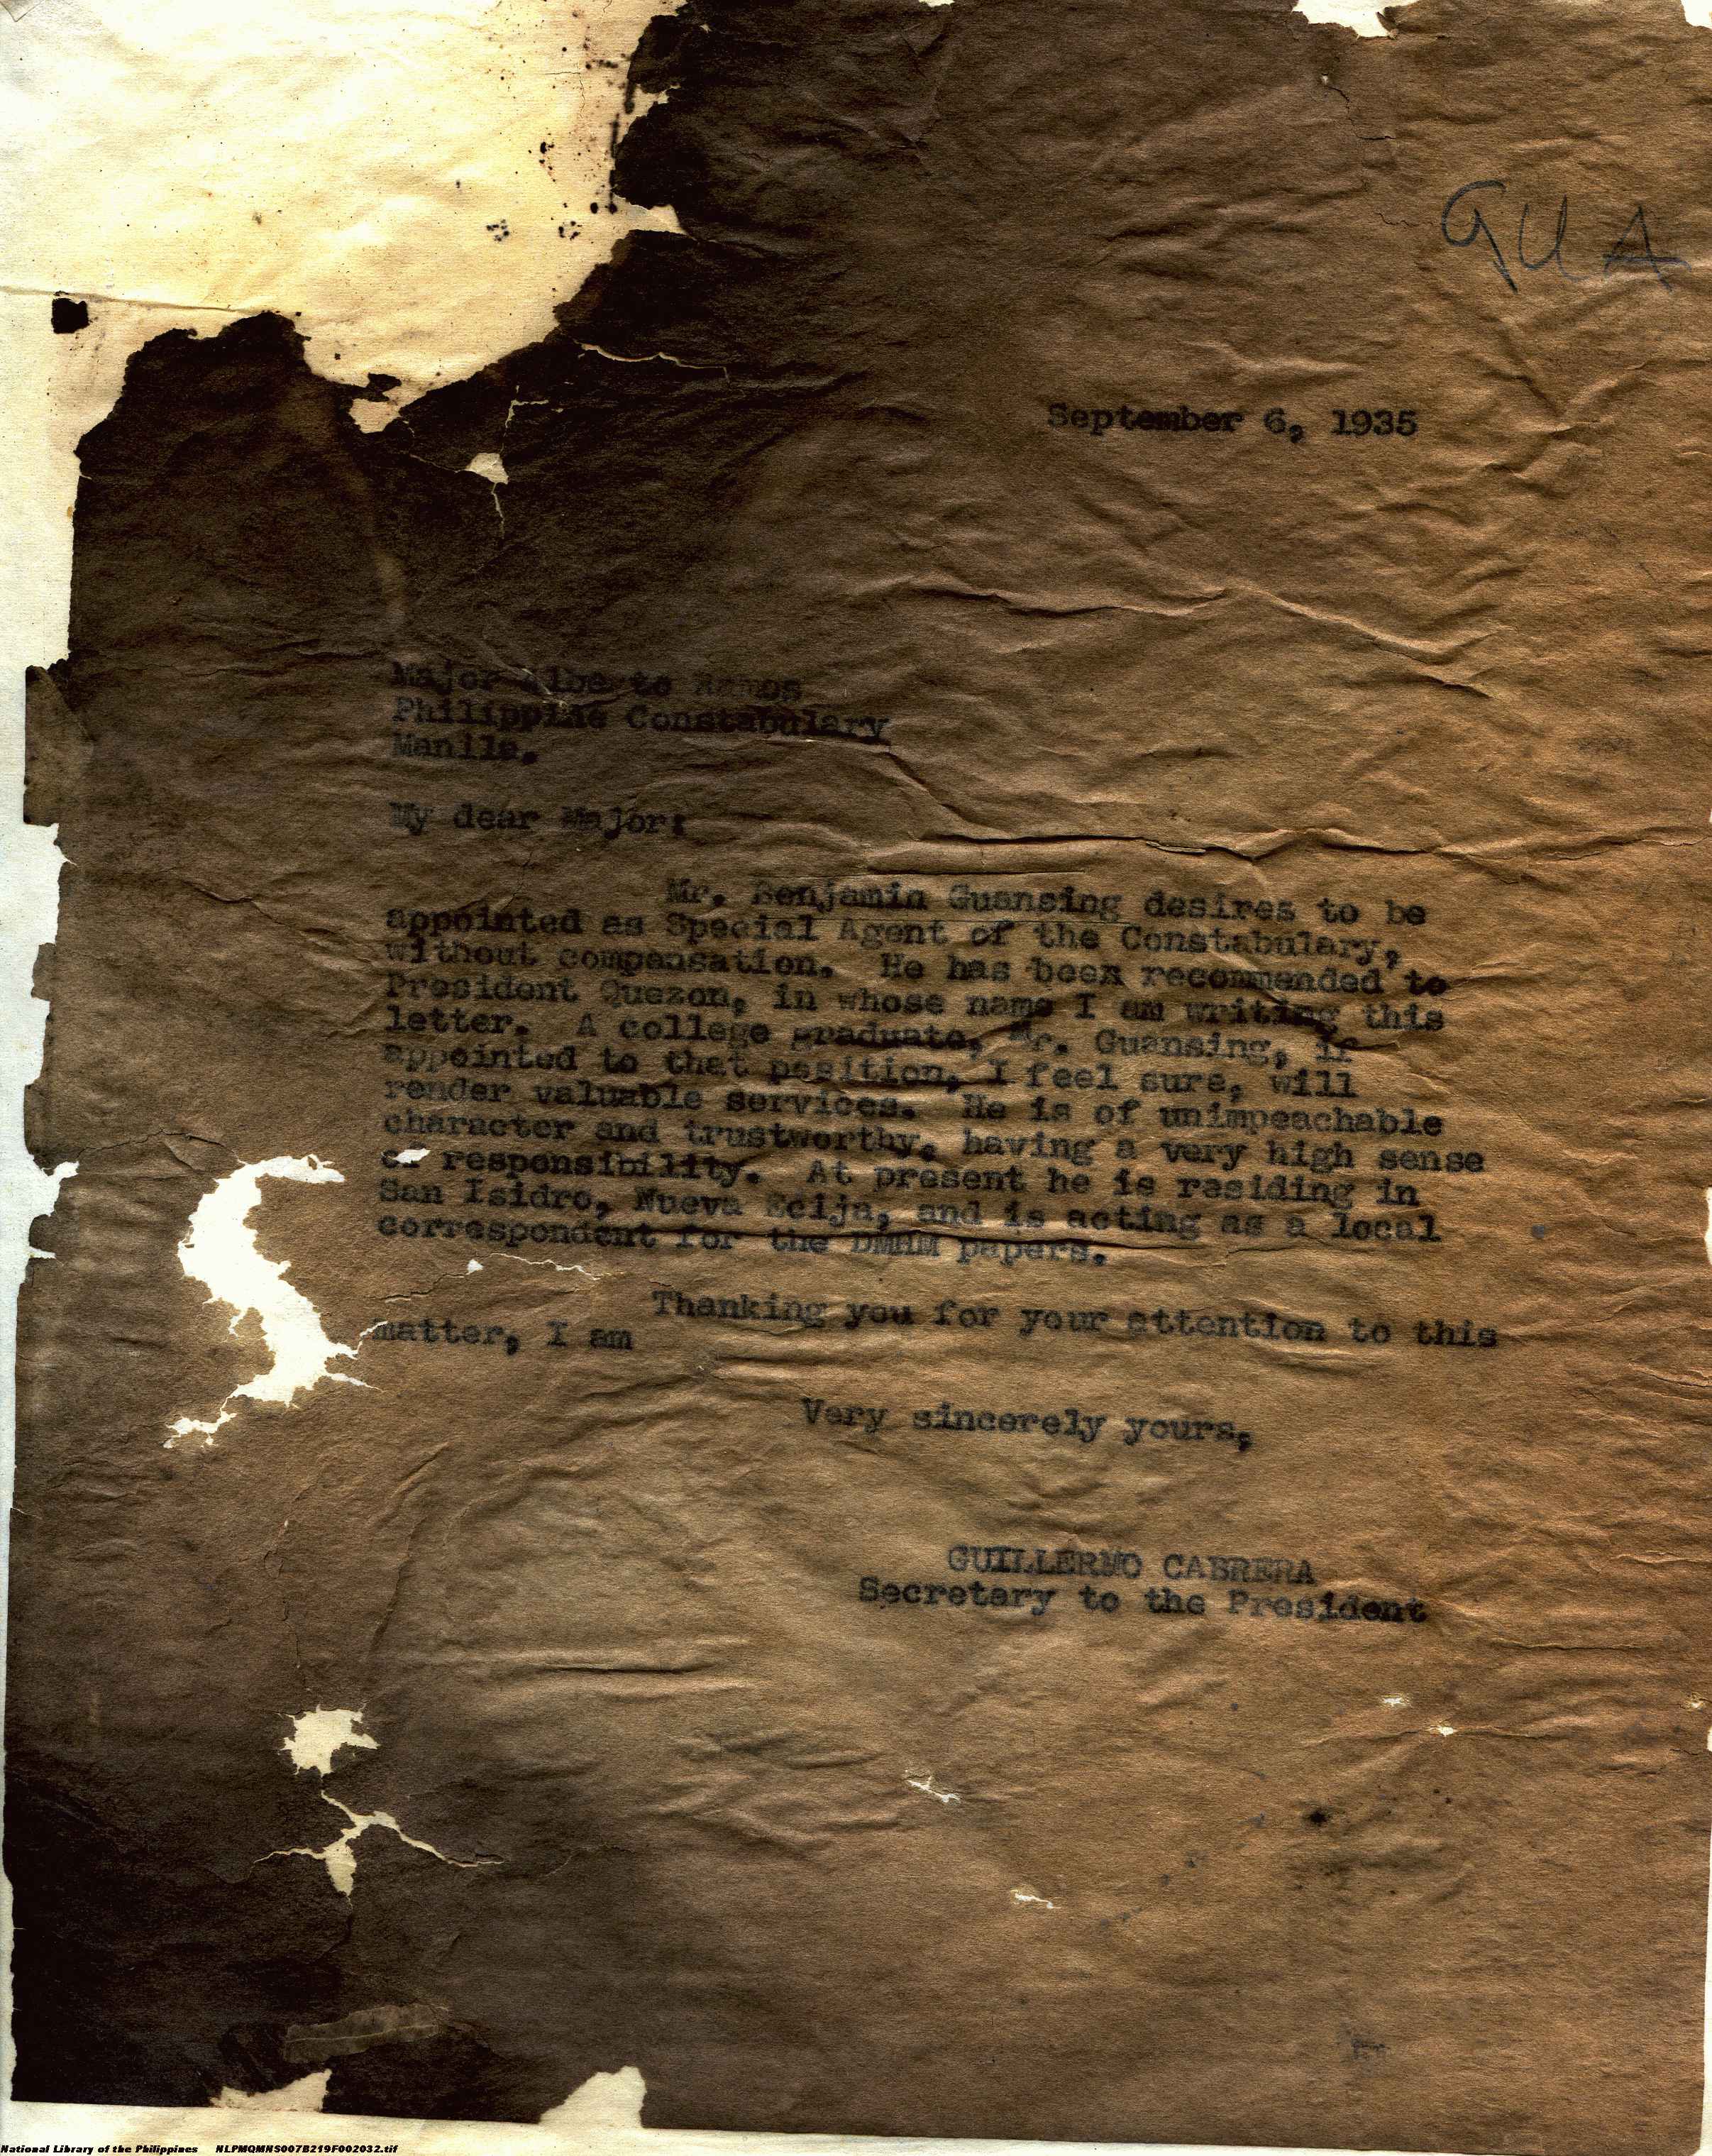 GUA
September 6, 1935
Major Alberto Ramos
Philippine Constabulary
Manila.
My dear Major:
Mr. Benjamin Guansing desires to be
appointed as Special Agent of the Constabulary,
without compensation. He has been recommended to
President Quezon, in whose name I am writing this
letter. A college graduate, Mr. Guansing, if
appointed to that position, I feel sure, will
render valuable services. He is of unimpeachable
character and trustworthy, having a very high sense
of responsibility. At present he is residing in
San Isidro, Nueva Ecija, and is acting as a local
correspondent for the DMHM papers.
Thanking you for your attention to this
matter, I am
Very sincerely yours,
GUILLERMO CABRERA
Secretary to the President
National Library of the Philippines NLPMQMNS007B219F002032.tif